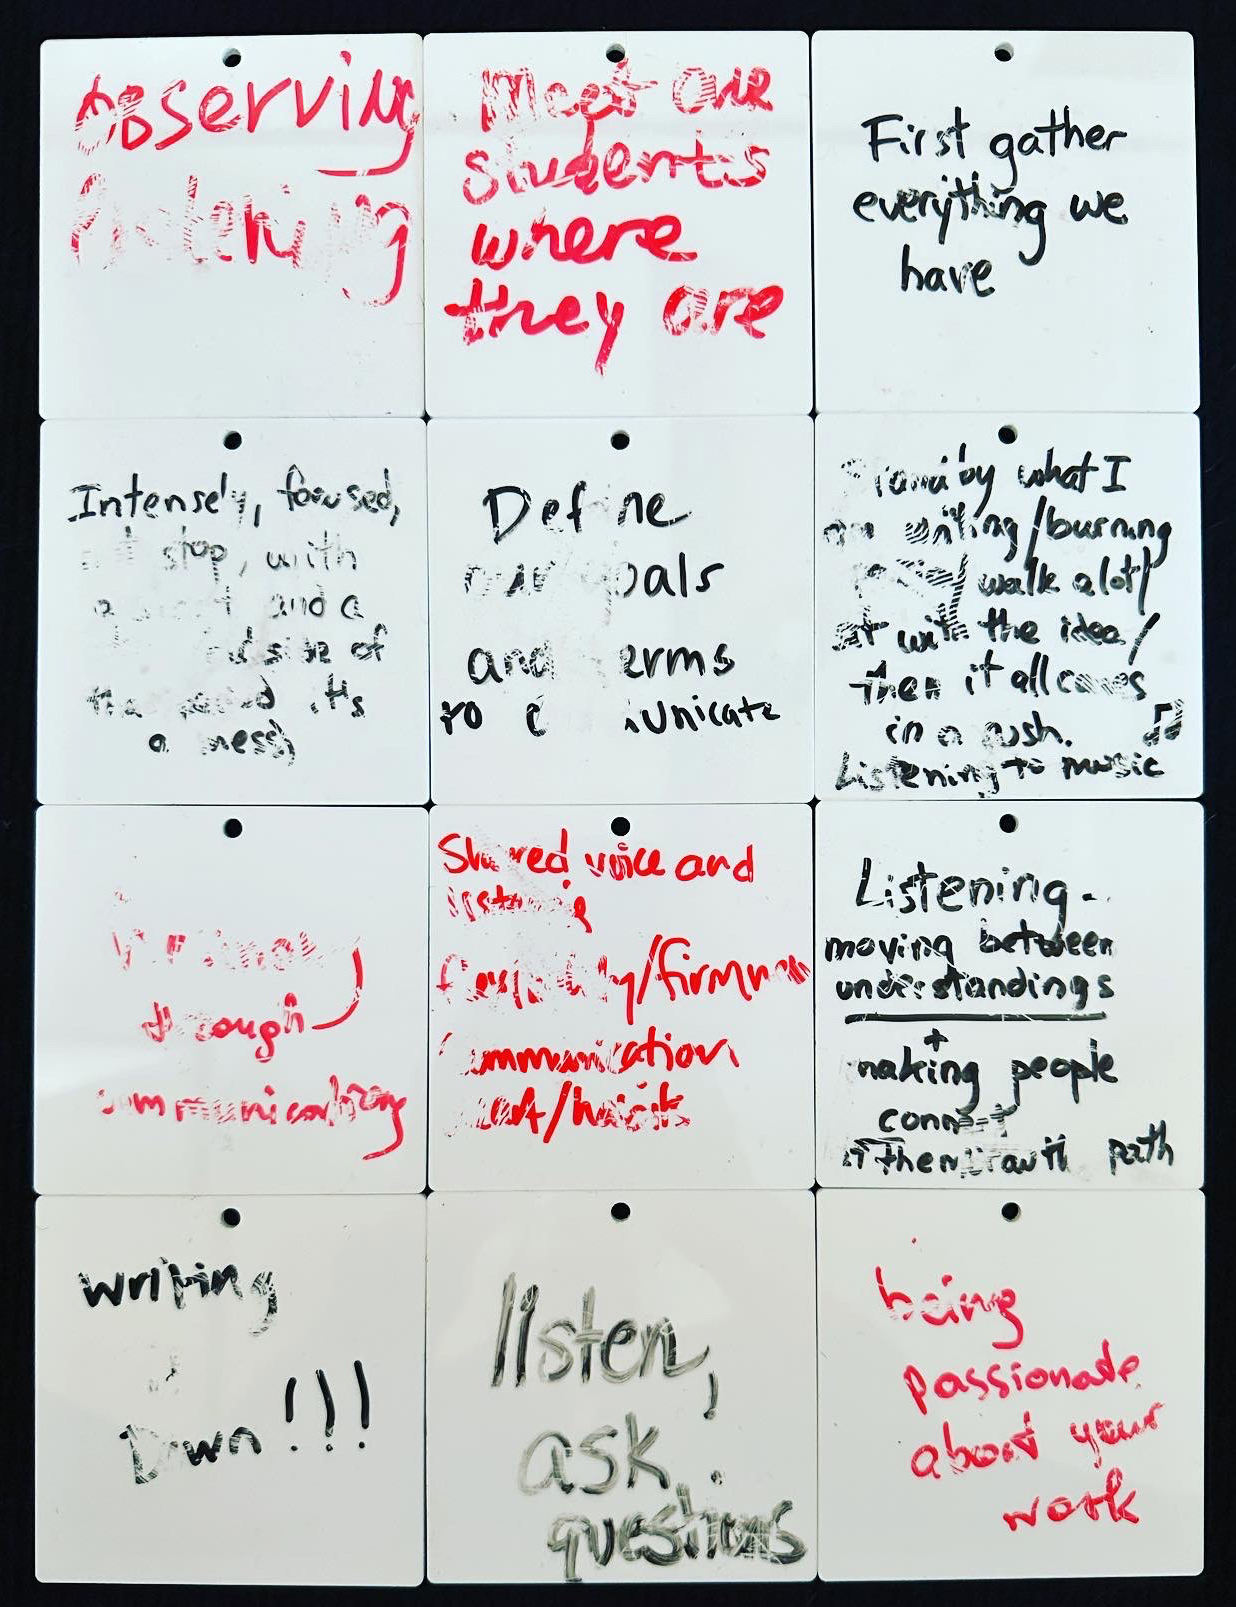 Observing
listening
Meet our
students
where
they are
First gather
everything we
have
Intensely, focused,
stop, with
a and a
side of
the it's
a mess
Define
our goals
and terms
to communicate
Stand by what I
am writing/burning
walk a lot/
sit with the idea/
then it all comes
in a rush.
Listening to music
through
communicating
Shared voice and
listening
flexibility/firmness
communication
/habits
Listening -
moving between
understandings
+
making people
connect
path
writing
Down!!!
listen,
ask
questions
being
passionate
about your
work